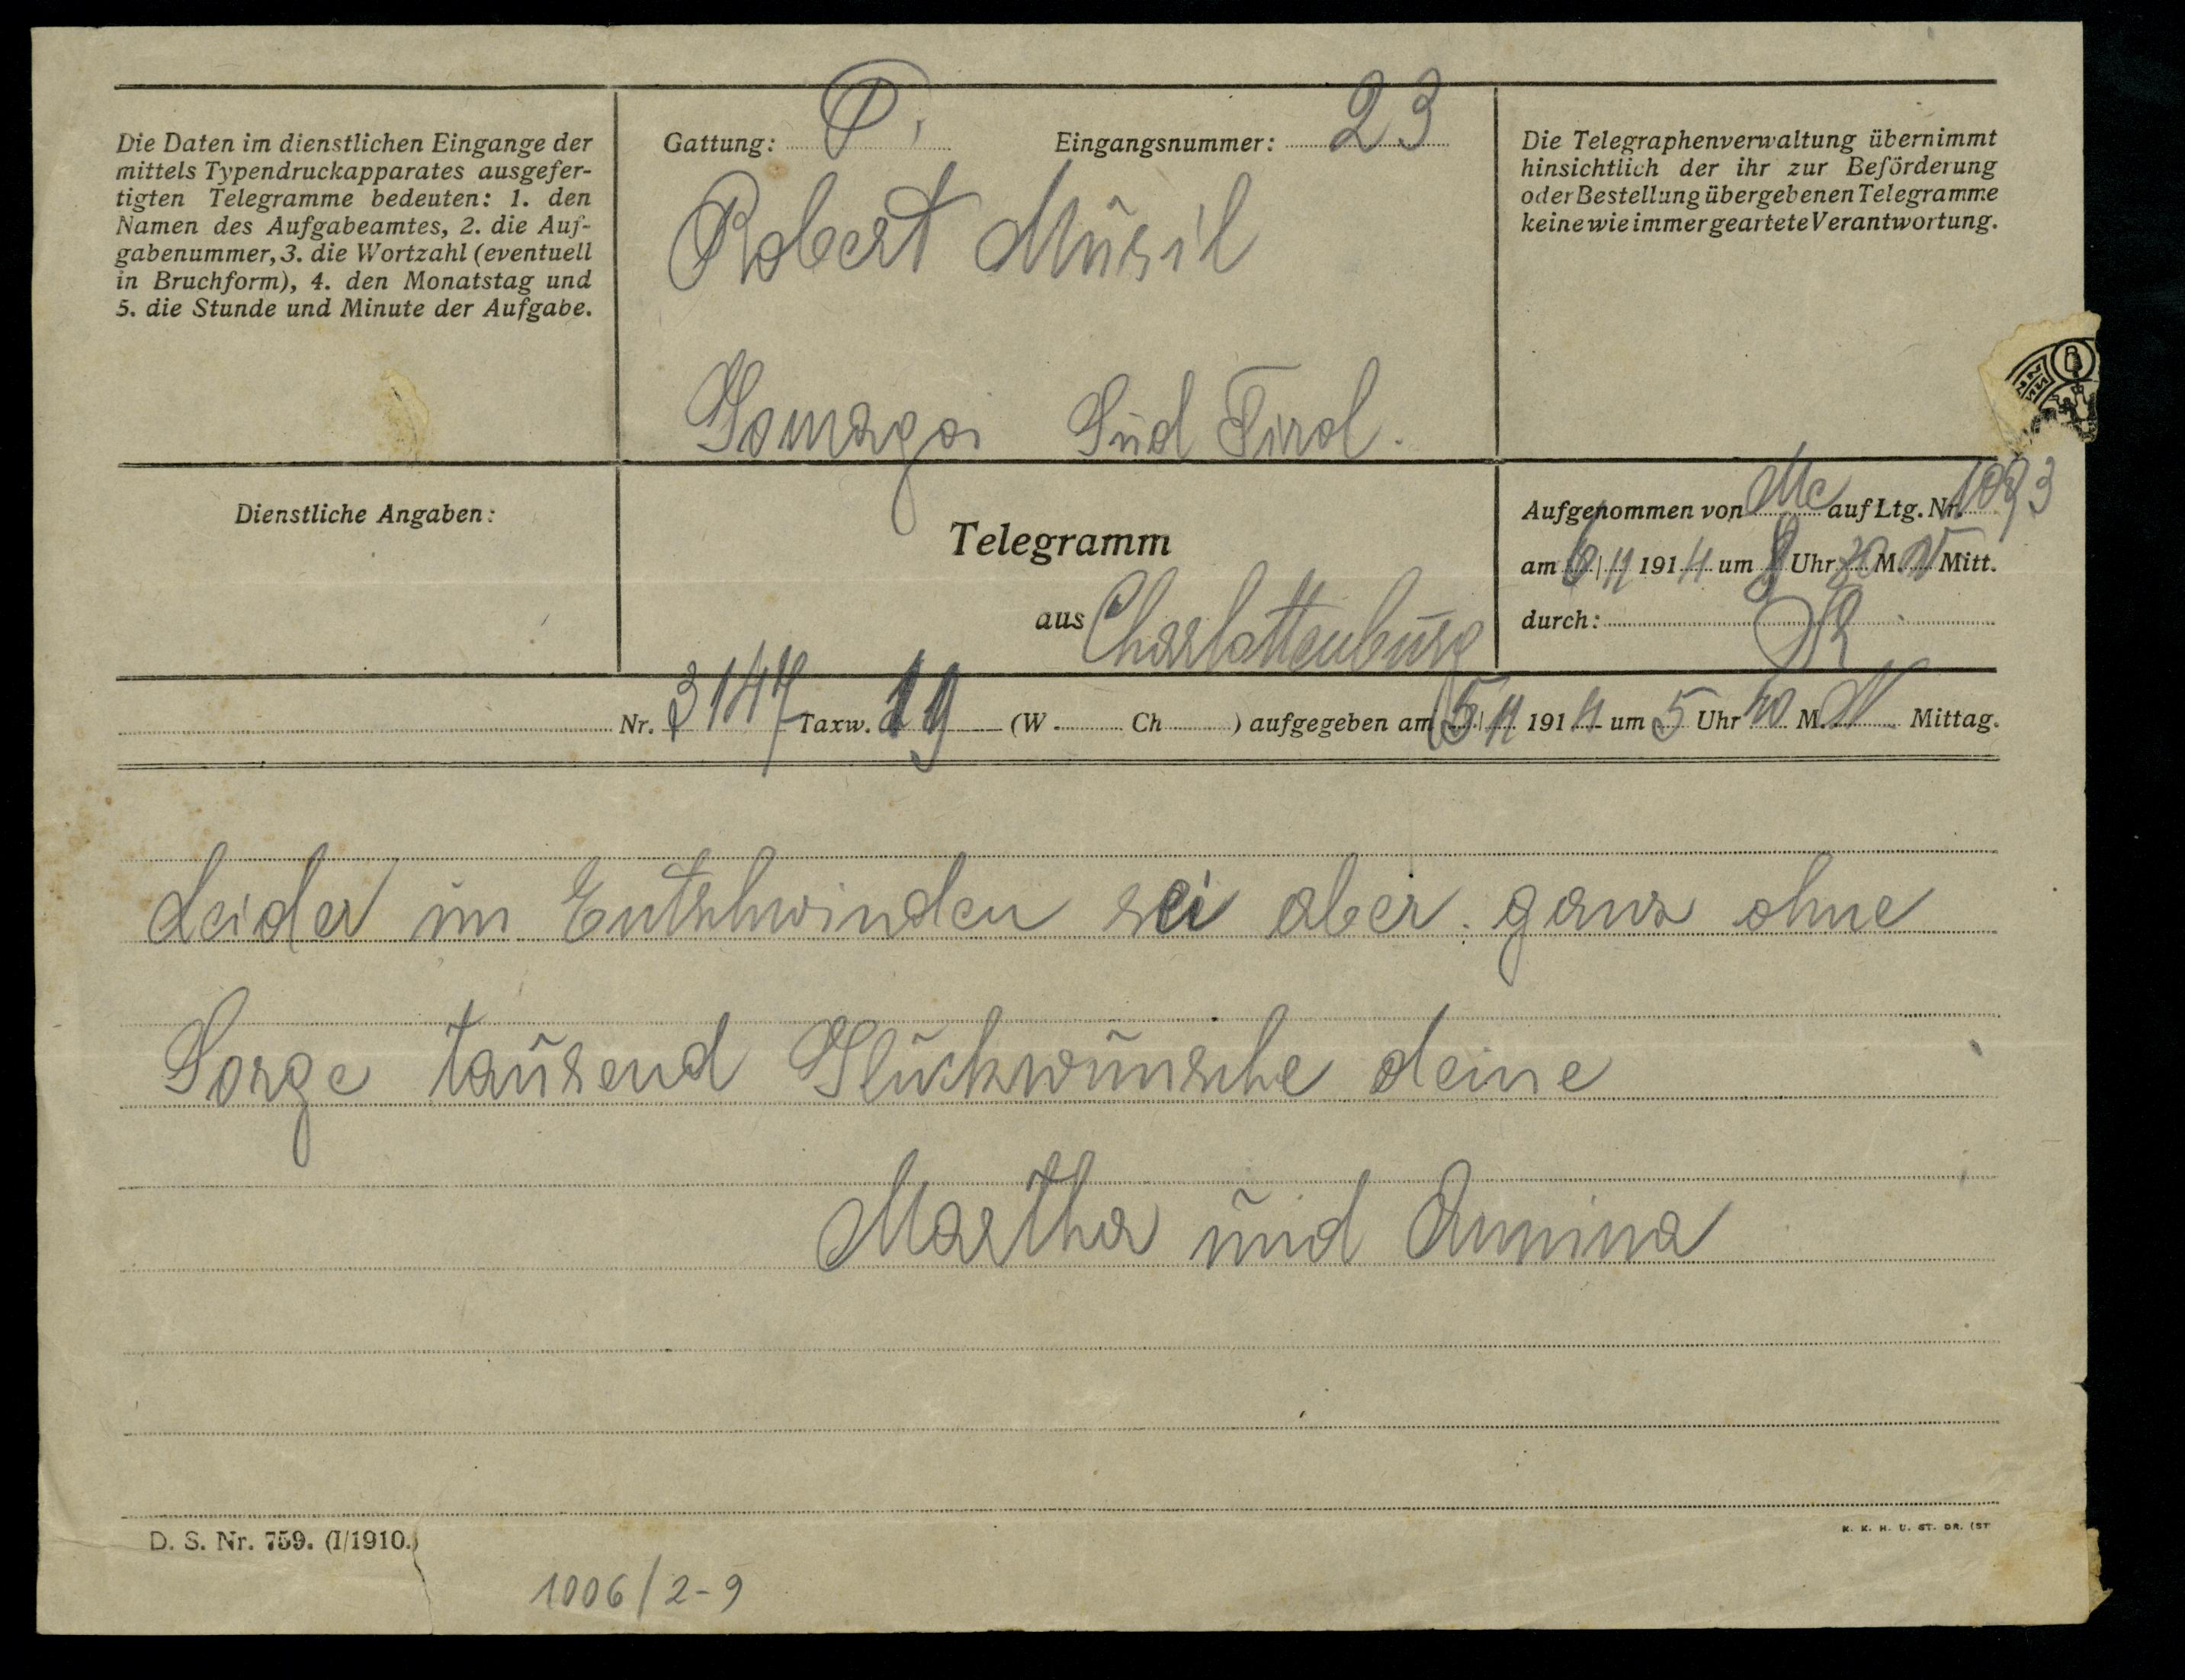 Die Daten im dienstlichen Eingange der
mittels Typendruckapparates ausgefer-
tigten Telegramme bedeuten: 1. den
Namen des Aufgabeamtes, 2. die Auf-
gabenummer, 3. die Wortzahl (eventuell
in Bruchform), 4. den Monatstag und
5. die Stunde und Minute der Aufgabe.
Gattung: P. Eingangsnummer: 23
Robert Musil
Gomagoi Süd Tirol.
Die Telegraphenverwaltung übernimmt
hinsichtlich der ihr zur Beförderung
oder Bestellung übergebenen Telegramme
keine wie immer geartete Verantwortung.
Dienstliche Angaben:
Telegramm
aus Charlottenburg
Aufgenommen von Mc auf Ltg. Nr.
am 6/11 1914 um 8 Uhr M. Mitt.
durch:
Nr. 3147 Taxw. 19 (W Ch ) aufgegeben am 5/11 1914 um 5 Uhr 40 M. N Mittag.
Leider im Entschwinden sei aber ganz ohne
Sorge tausend Glückwünsche deine
Martha und Annina
D. S. Nr. 759. (I/1910.)
K. K. H. U. ST. DR. (ST
1006/2-9